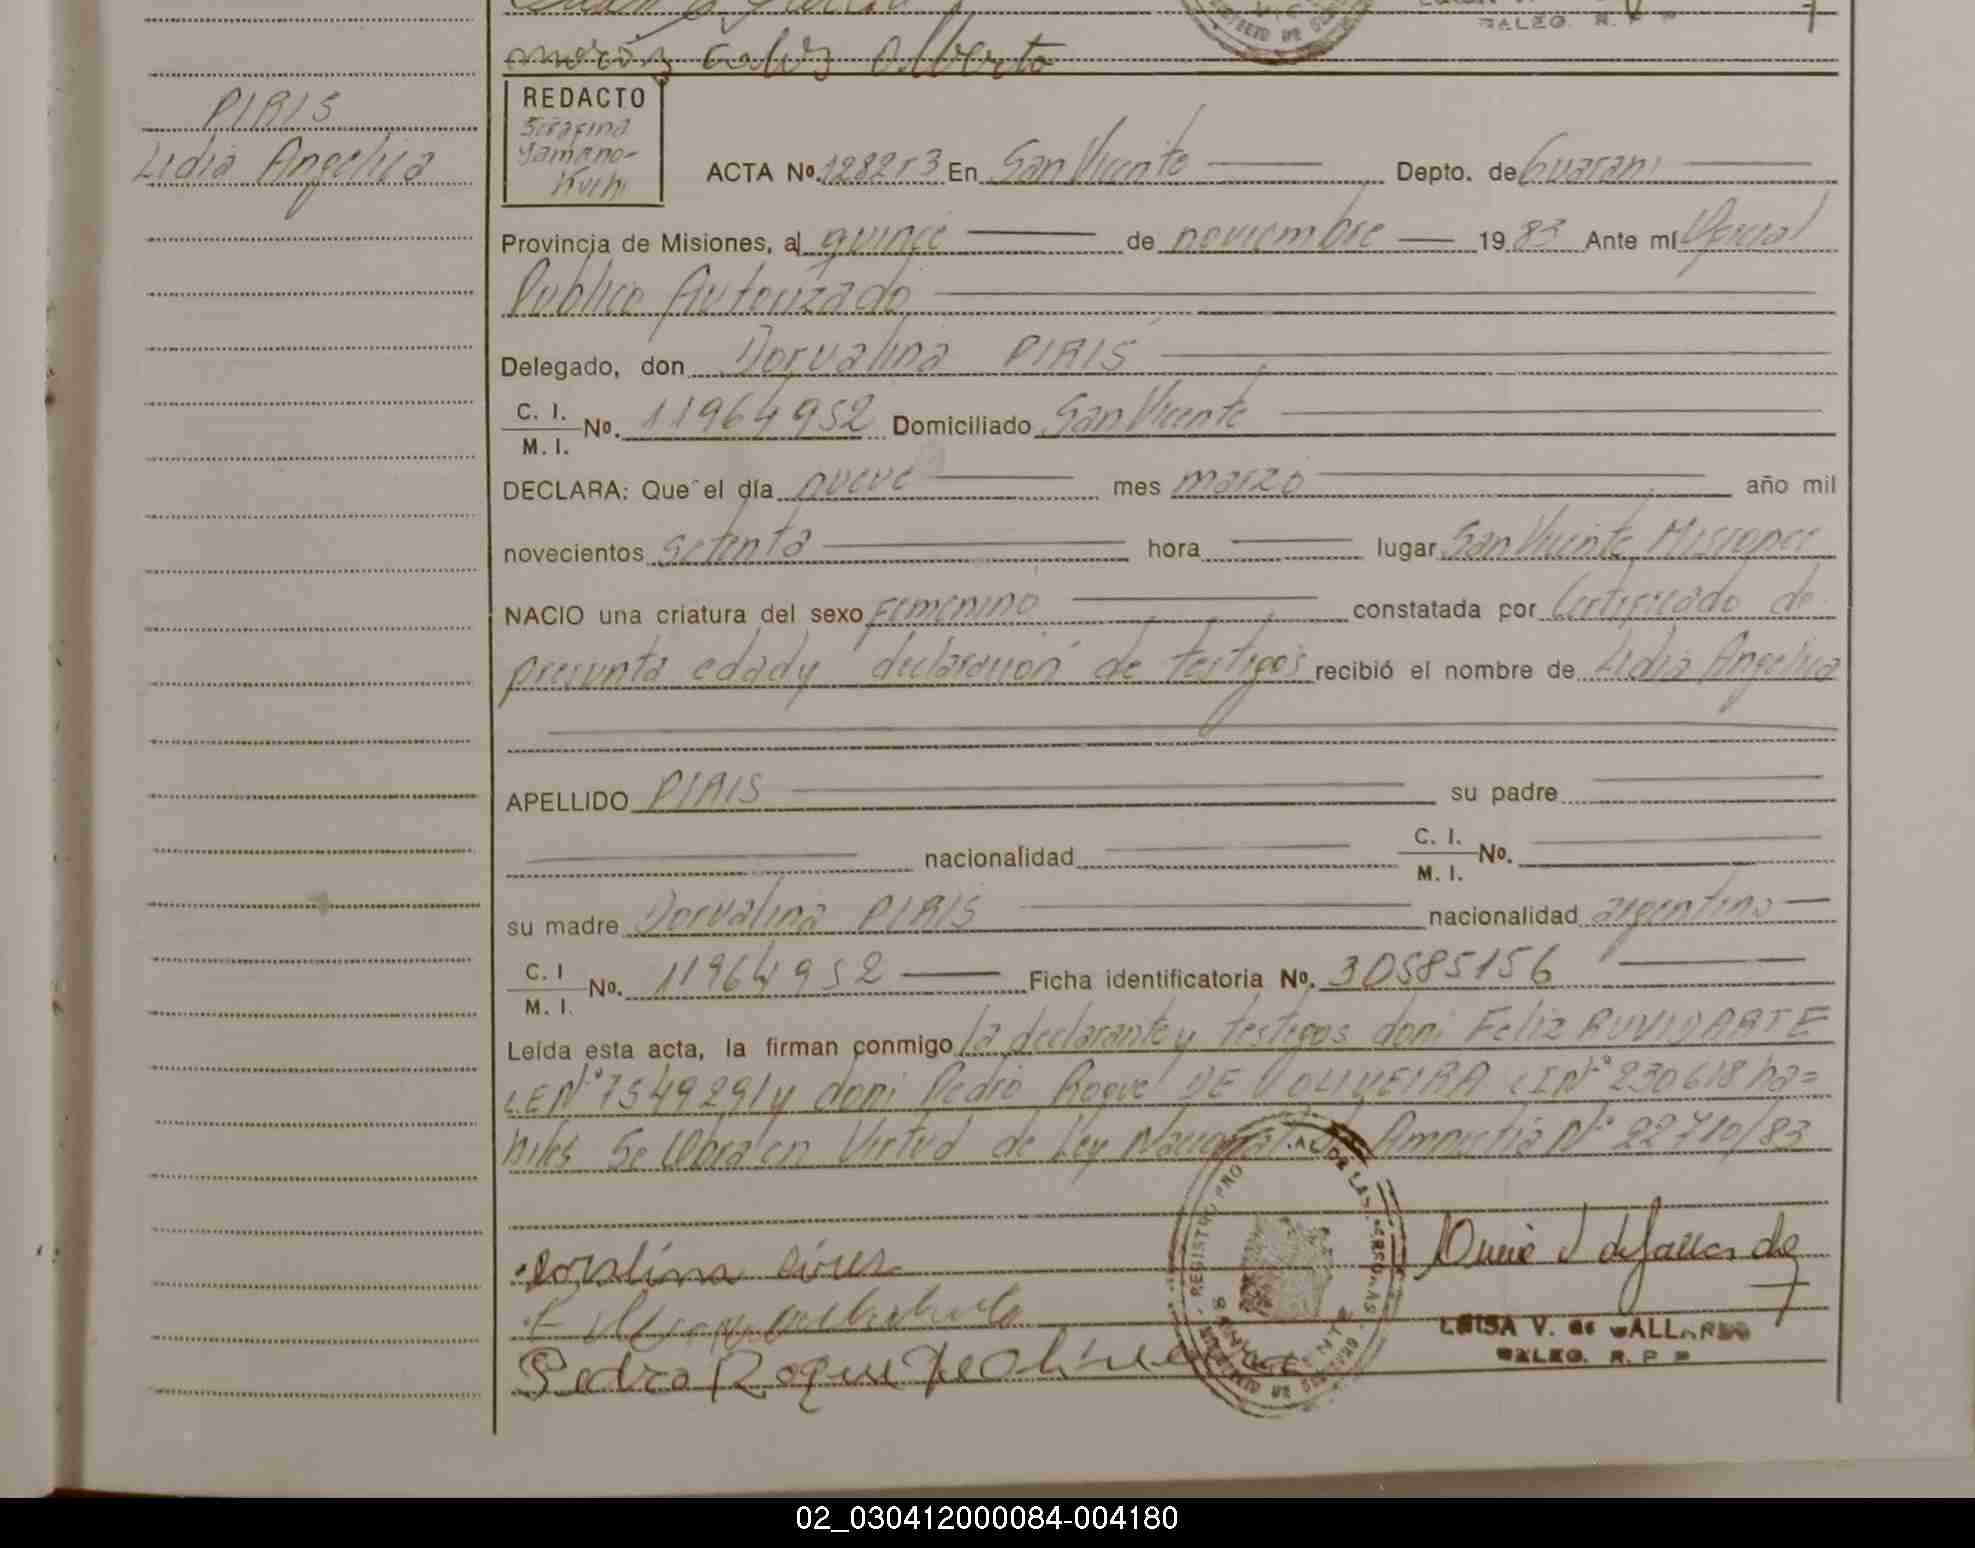 Alberto
PIRIS
Lidia Angelica
REDACTO
Serafina
Yamano-
ACTA Nº. En San Vicente Depto. de Guarani
Provincia de Misiones, al quince de noviembre 1983 Ante mí Oficial
Publico Autorizado
Delegado, don Dorvalina PIRIS
C. I.
M. I. Nº. 11964952 Domiciliado San Vicente
DECLARA: Que el día nueve mes marzo año mil
novecientos setenta hora lugar San Vicente Misiones
NACIO una criatura del sexo Femenino constatada por Certificado de
presunta edad y declaracion de testigos recibió el nombre de Lidia Angelica
APELLIDO PIRIS su padre
nacionalidad C. I.
M. I. Nº.
su madre Dorvalina PIRIS nacionalidad argentina
C. I
M. I. Nº. 11964952 Ficha identificatoria Nº. 30585156
Leída esta acta, la firman conmigo la declarante y testigos don: Feliz RUVIDARTE
LENº 7549291 y don: Pedro Roque DE OLIVEIRA CINº 230618 ha=
biles Se labra en Virtud de Ley Nacional de Amnistia Nº 22710/83
REGISTRO DE LAS PERSONAS
Pedro Roque De Oliveira
LUISA V. de GALLARDO
DALEG. R. P. P
02_030412000084-004180